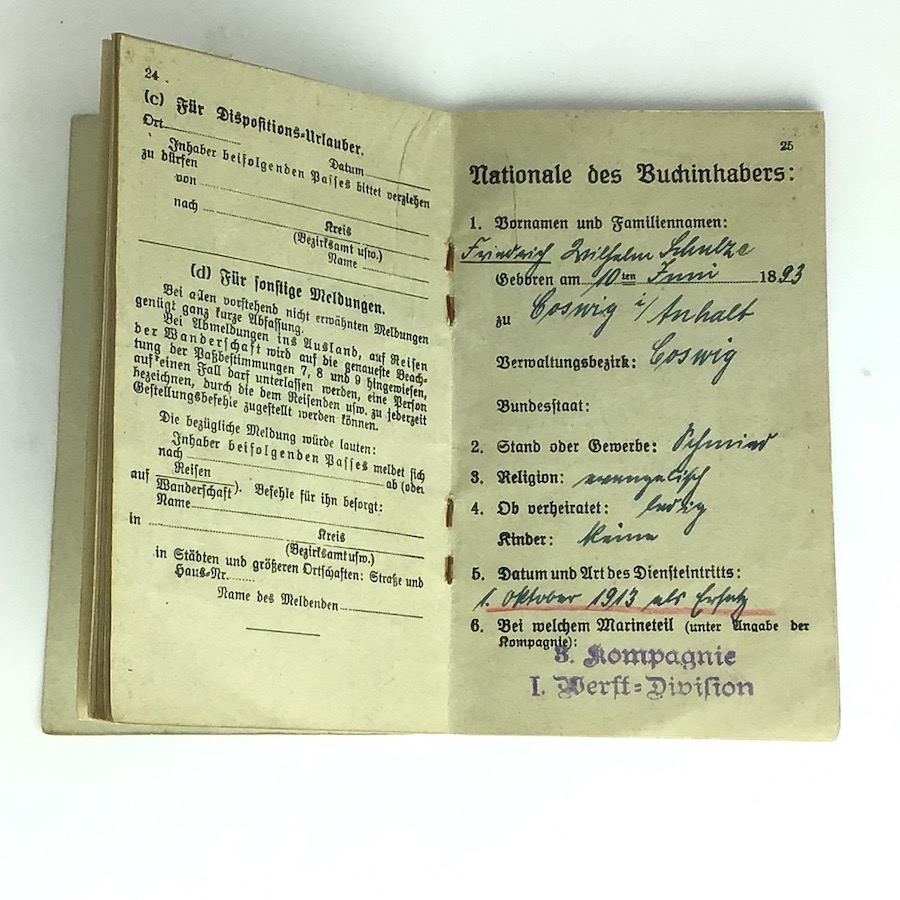 24
(c) Für Dispositions-Urlauber.
Ort
Datum
Inhaber beifolgenden Passes bittet verziehen
zu dürfen
von
nach
Kreis
(Bezirksamt usw.)
Name
(d) Für sonstige Meldungen.
Bei allen vorstehend nicht erwähnten Meldungen
genügt ganz kurze Abfassung.
Bei Abmeldungen ins Ausland, auf Reisen
der Wanderschaft wird auf die genaueste Beach-
tung der Paßbestimmungen 7, 8 und 9 hingewiesen,
auf einen Fall darf unterlassen werden, eine Person
bezeichnen, durch die dem Reisenden usw. zu jederzeit
Gestellungsbefehle zugestellt werden können.
Die bezügliche Meldung würde lauten:
Inhaber beifolgenden Passes meldet sich
nach ab (oder
auf Reisen
Wanderschaft). Befehle für ihn besorgt:
Name
in
Kreis
(Bezirksamt usw.)
in Städten und größeren Ortschaften: Straße und
Haus-Nr.
Name des Meldenden
25
Nationale des Buchinhabers:
1. Vornamen und Familiennamen:
Friedrich Wilhelm Schulze
Geboren am 10ten Juni 1893
zu Coswig i/Anhalt
Verwaltungsbezirk: Coswig
Bundesstaat:
2. Stand oder Gewerbe: Schmied
3. Religion: evangelisch
4. Ob verheiratet: ledig
Kinder: keine
5. Datum und Art des Diensteintritts:
1. Oktober 1913 als Ersatz
6. Bei welchem Marineteil (unter Angabe der
Kompagnie):
3. Kompagnie
I. Werft=Division